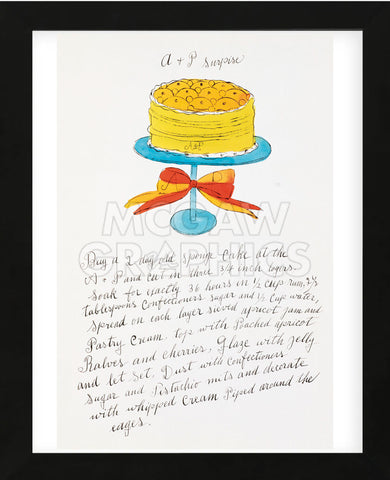 A + P Surprise
A&P
McGAW
GRAPHICS
Buy a 2 day old sponge cake at the
A + P and cut in three 3/4 inch layers.
Soak for exactly 36 hours in ½ cup rum, 2½
tablespoons Confectioners sugar and ½ cup water,
Spread on each layer sieved apricot jam and
Pastry Cream, top with Poached apricot
Halves and cherries, Glaze with Jelly
and let set. Dust with Confectioners
Sugar and Pistachio nuts and decorate
with whipped Cream Piped around the
edges.